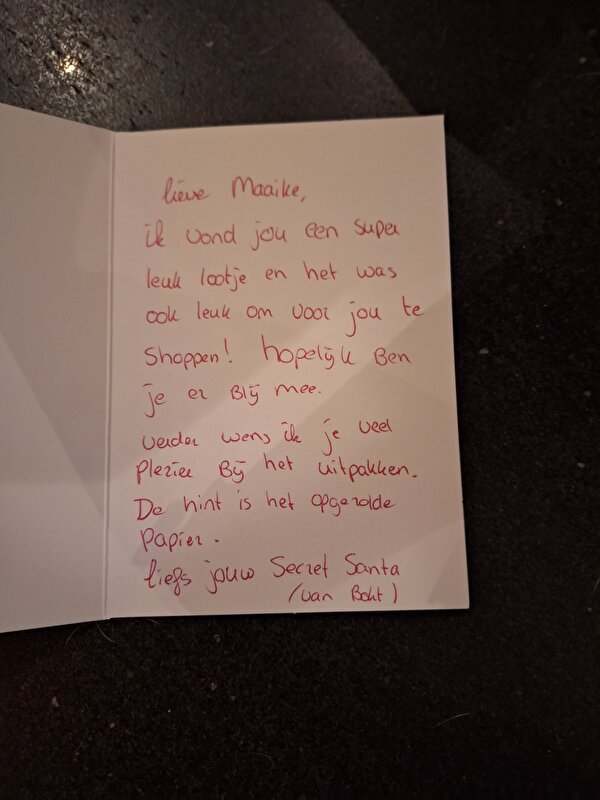 lieve Maaike,
ik vond jou een super
leuk lootje en het was
ook leuk om voor jou te
shoppen! hopelijk Ben
je er Blij mee.
verder wens ik je veel
plezier Bij het uitpakken.
De hint is het opgerolde
papier.
liefs jouw Secret Santa
(van Bokt)